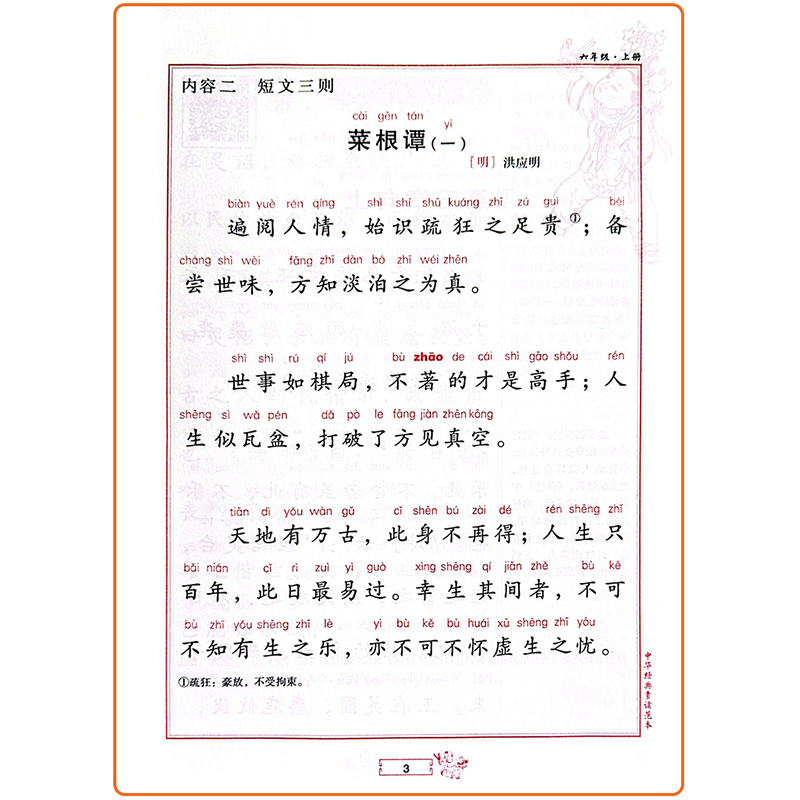 六年级·上册
内容二 短文三则
cài gēn tán yī
菜根谭(一)
[明] 洪应明
biàn yuè rén qíng shì shí shū kuáng zhī zú guì bèi
遍阅人情，始识疏狂之足贵①；备
cháng shì wèi fāng zhī dàn bó zhī wéi zhēn
尝世味，方知淡泊之为真。
shì shì rú qí jú bù zhāo de cái shì gāo shǒu rén
世事如棋局，不著的才是高手；人
shēng sì wǎ pén dǎ pò le fāng jiàn zhēn kōng
生似瓦盆，打破了方见真空。
tiān dì yǒu wàn gǔ cǐ shēn bú zài dé rén shēng zhǐ
天地有万古，此身不再得；人生只
bǎi nián cǐ rì zuì yì guò xìng shēng qí jiān zhě bù kě
百年，此日最易过。幸生其间者，不可
bù zhī yǒu shēng zhī lè yì bù kě bù huái xū shēng zhī yōu
不知有生之乐，亦不可不怀虚生之忧。
①疏狂：豪放，不受拘束。
中华经典素读范本
3